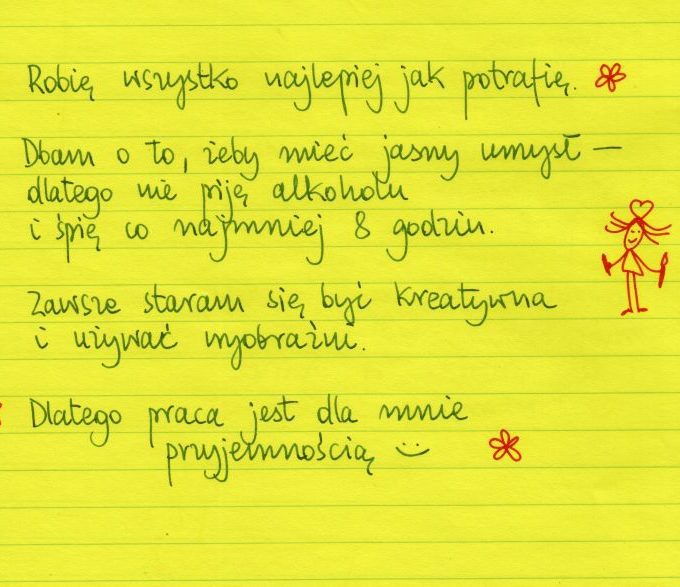 Robię wszystko najlepiej jak potrafię.
Dbam o to, żeby mieć jasny umysł –
dlatego nie piję alkoholu
i śpię co najmniej 8 godzin.
Zawsze staram się być kreatywna
i używać wyobraźni.
Dlatego praca jest dla mnie
przyjemnością :)